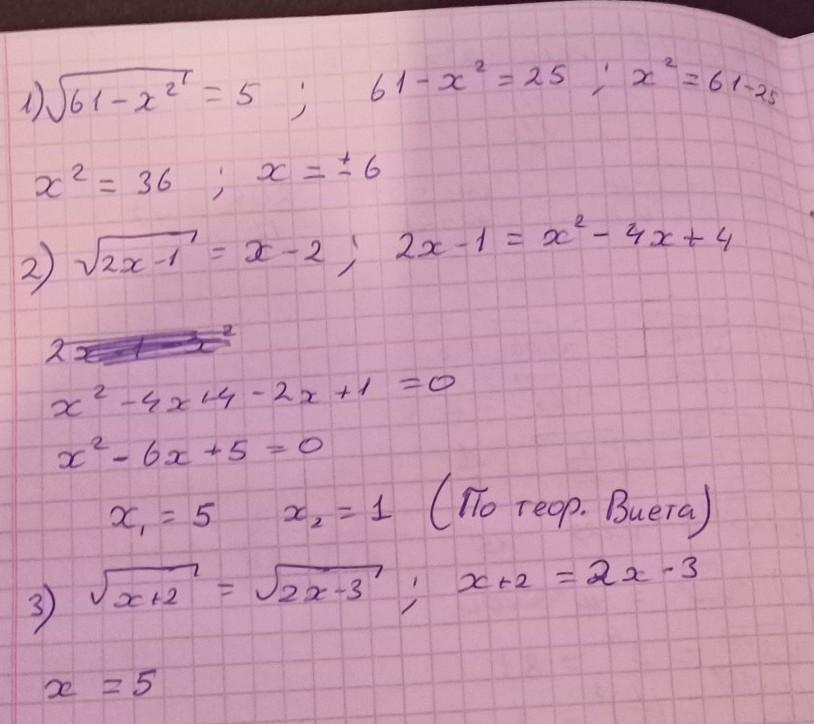 1) √(61 - x²) = 5 ; 61 - x² = 25 ; x² = 61 - 25
x² = 36 ; x = ± 6
2) √(2x - 1) = x - 2 ; 2x - 1 = x² - 4x + 4
x² - 4x + 4 - 2x + 1 = 0
x² - 6x + 5 = 0
x₁ = 5 x₂ = 1 (По теор. Виета)
3) √(x+2) = √(2x - 3) ; x + 2 = 2x - 3
x = 5